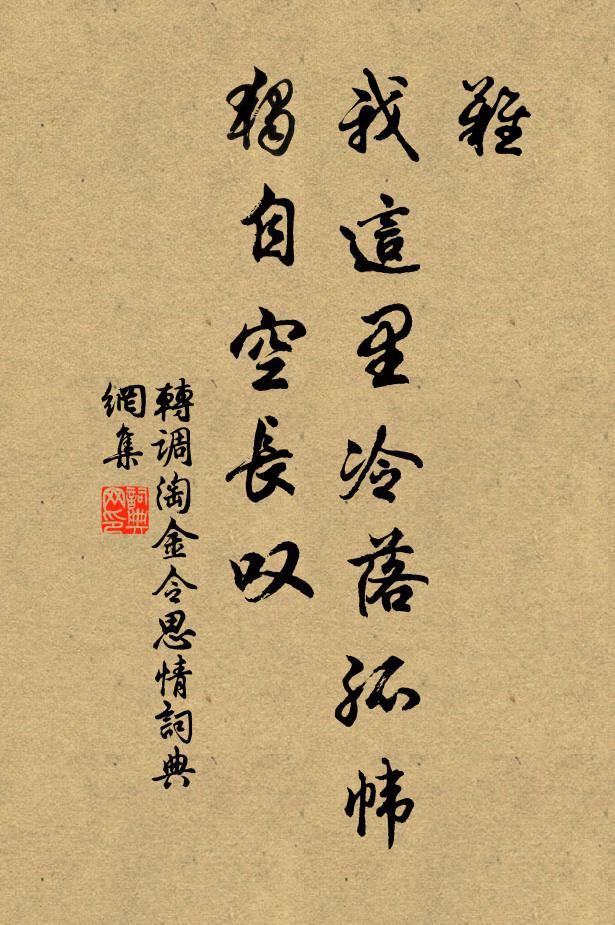 難
我這里冷落孤幃
獨自空長叹
轉調淘金令思情詞典
網集
詞典
网印